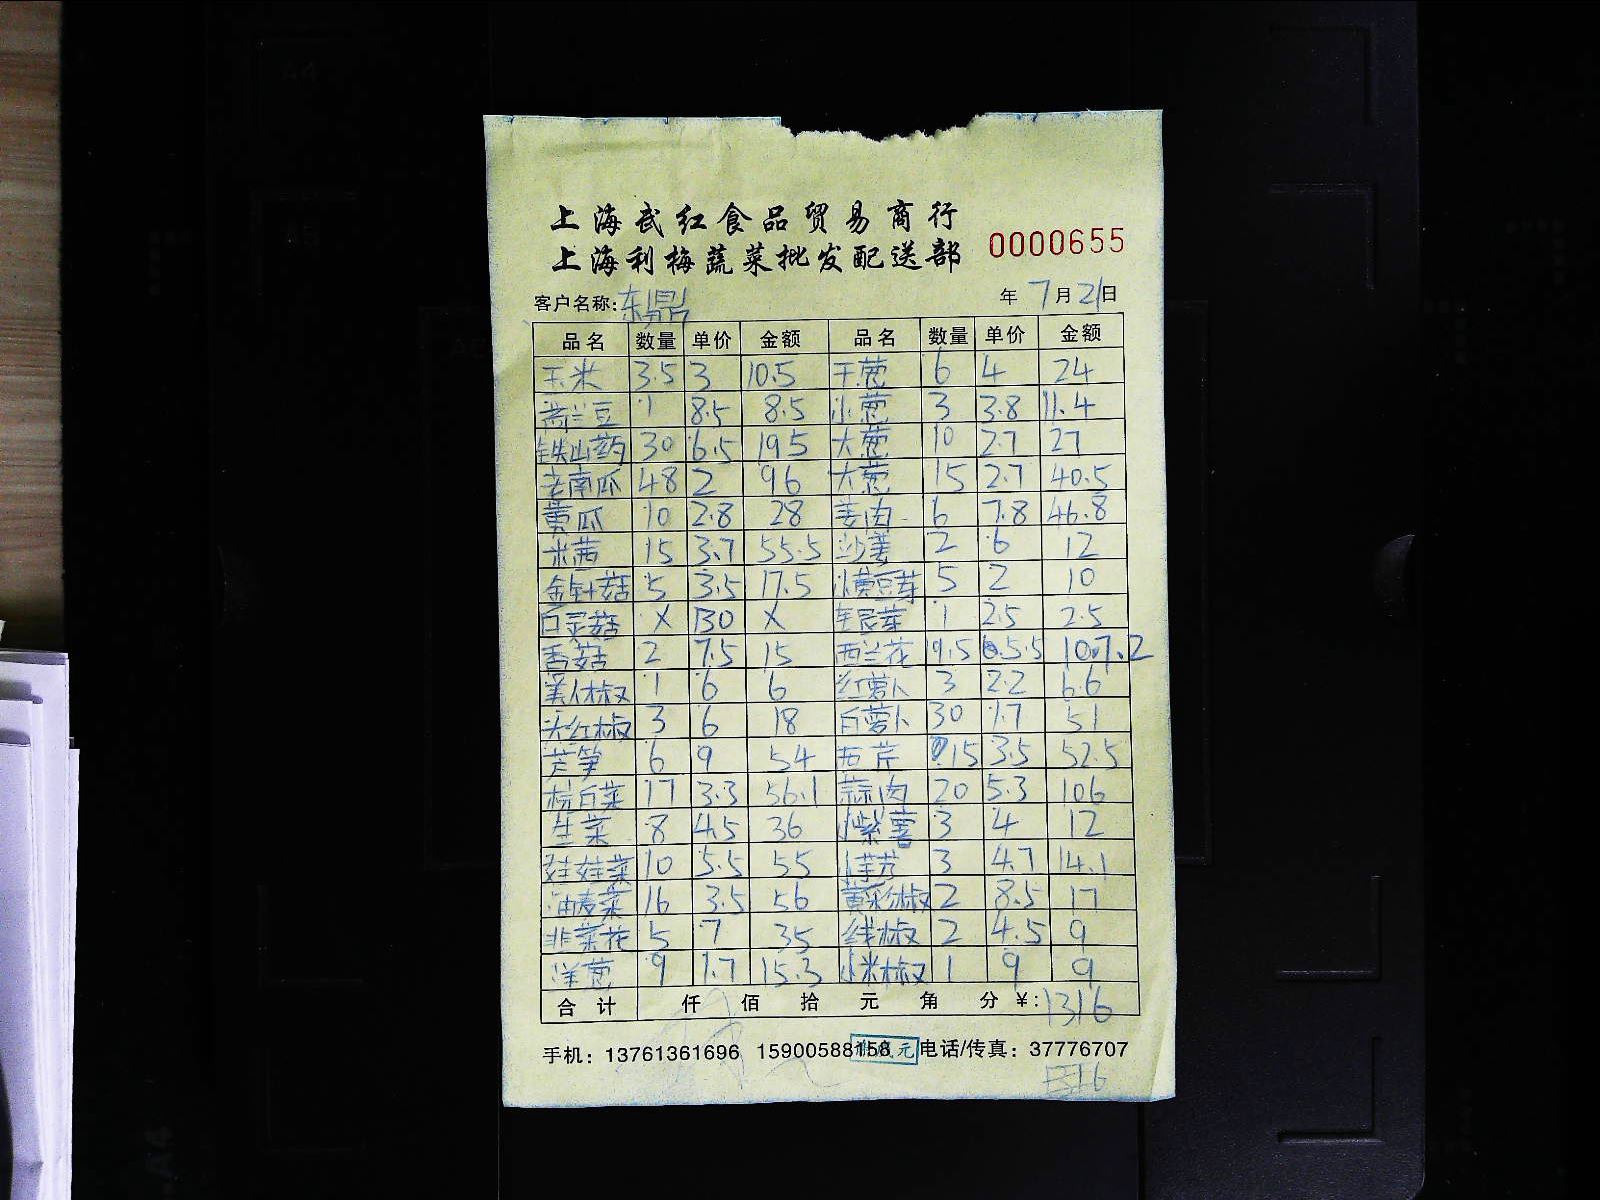 上海武红食品贸易商行
上海利梅蔬菜批发配送部
0000655
客户名称: 东鼎 年 7 月 21 日
品名 数量 单价 金额 品名 数量 单价 金额
玉米 3.5 3 10.5 干葱 6 4 24
荷兰豆 1 8.5 8.5 小葱 3 3.8 11.4
铁山药 30 6.5 195 大葱 10 2.7 27
老南瓜 48 2 96 大葱 15 2.7 40.5
黄瓜 10 2.8 28 姜肉 6 7.8 46.8
米茜 15 3.7 55.5 沙姜 2 6 12
金针菇 5 3.5 17.5 小黄豆芽 5 2 10
白灵菇 X 130 X 2.5 2.5
香菇 2 7.5 15 西兰花 19.5 5.5 107.2
美人椒 1 6 6 红萝卜 3 2.2 6.6
尖红椒 3 6 18 白萝卜 30 1.7 51
芦笋 6 9 54 西芹 15 3.5 52.5
杭白菜 17 3.3 56.1 蒜肉 20 5.3 106
生菜 8 4.5 36 小紫薯 3 4 12
娃娃菜 10 5.5 55 小芋艿 3 4.7 14.1
油麦菜 16 3.5 56 黄彩椒 2 8.5 17
韭菜花 5 7 35 线椒 2 4.5 9
洋葱 9 1.7 15.3 小米椒 1 9 9
合计 仟 佰 拾 元 角 分 ¥: 1316
手机: 13761361696 15900588158 电话/传真: 37776707